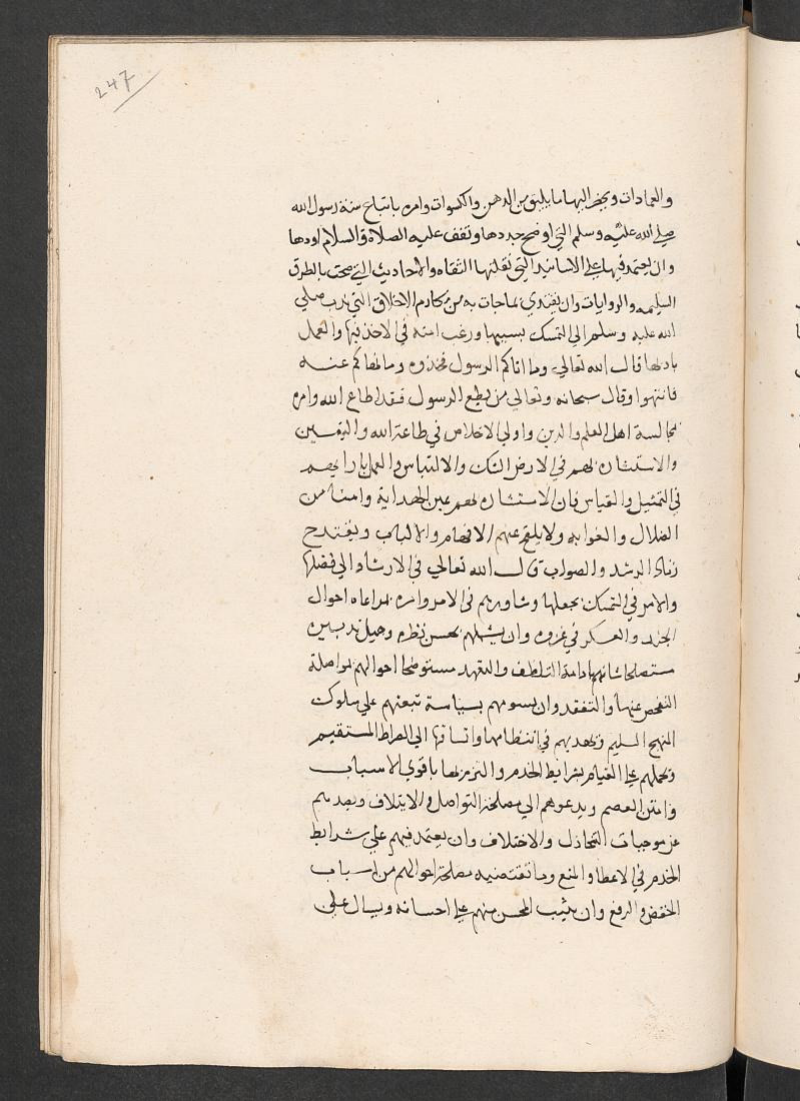 247
والعمادات ويحضر اليها ما يليق من الدهن والكسوات وامره باتباع سنة رسول الله
صلى الله عليه وسلم التي اوضح جددها وثقف عليه الصلاة والسلام اودها
وان يعتمد فيها على الاسانيد التي نقلتها الثقاه والاحاديث التي صحت بالطرق
السليمه والروايات وان يقتدي بما جات به من مكارم الاخلاق التي ندب صلي
الله عليه وسلم الي التمسك بسببها ورغب امته في الاخذ بها والعمل
بادبها قال الله تعالي وما اتاكم الرسول فخذوه وما نهاكم عنه
فانتهوا وقال سبحانه وتعالي من يطع الرسول فقد اطاع الله وامره
بمجالسة اهل العلم والدين واولي الاخلاص في طاعة الله واليقين
والاستشاره لهم في الشك والالتباس والعمل باراءهم
في التمثيل والقياس فان الاستشاره لهم عين الهداية وامنا من
الضلال والغوايه ولا يلقح عنهم الافهام والالباب ويقتدح
زناد الرشد والصواب قال الله تعالي في الارشاد الي فضلها
والامر في التمسك بحبلها وشاورهم في الامر وامره بمراعاه احوال
الجند والعسكر في غزوه وان يشملهم بحسن نظره وجميل تدبيره
مستصلحا شانهم بادامة التلطف والتعهد مستوضحا احوالهم بمواصلة
التفحص عنها والتفقد وان يسومهم بسياسة تبعثهم علي سلوك
النهج السليم ويهديهم في انتظامها واتساقها الي الصراط المستقيم
ويحملهم على القيام بشرايط الخدم والتزم بها باقوي الاسباب
وامتن العصم ويدعوهم الي مصلحة التواصل والايتلاف ويصدهم
عن موجبات التخاذل والاختلاف وان يعتمد فيهم علي شرايط
الخدم في الاعطا والمنع وما تقتضيه مصلحة احوالهم من اسباب
الخفض والرفع وان يثيب المحسن منهم على احسانه ويسال علي